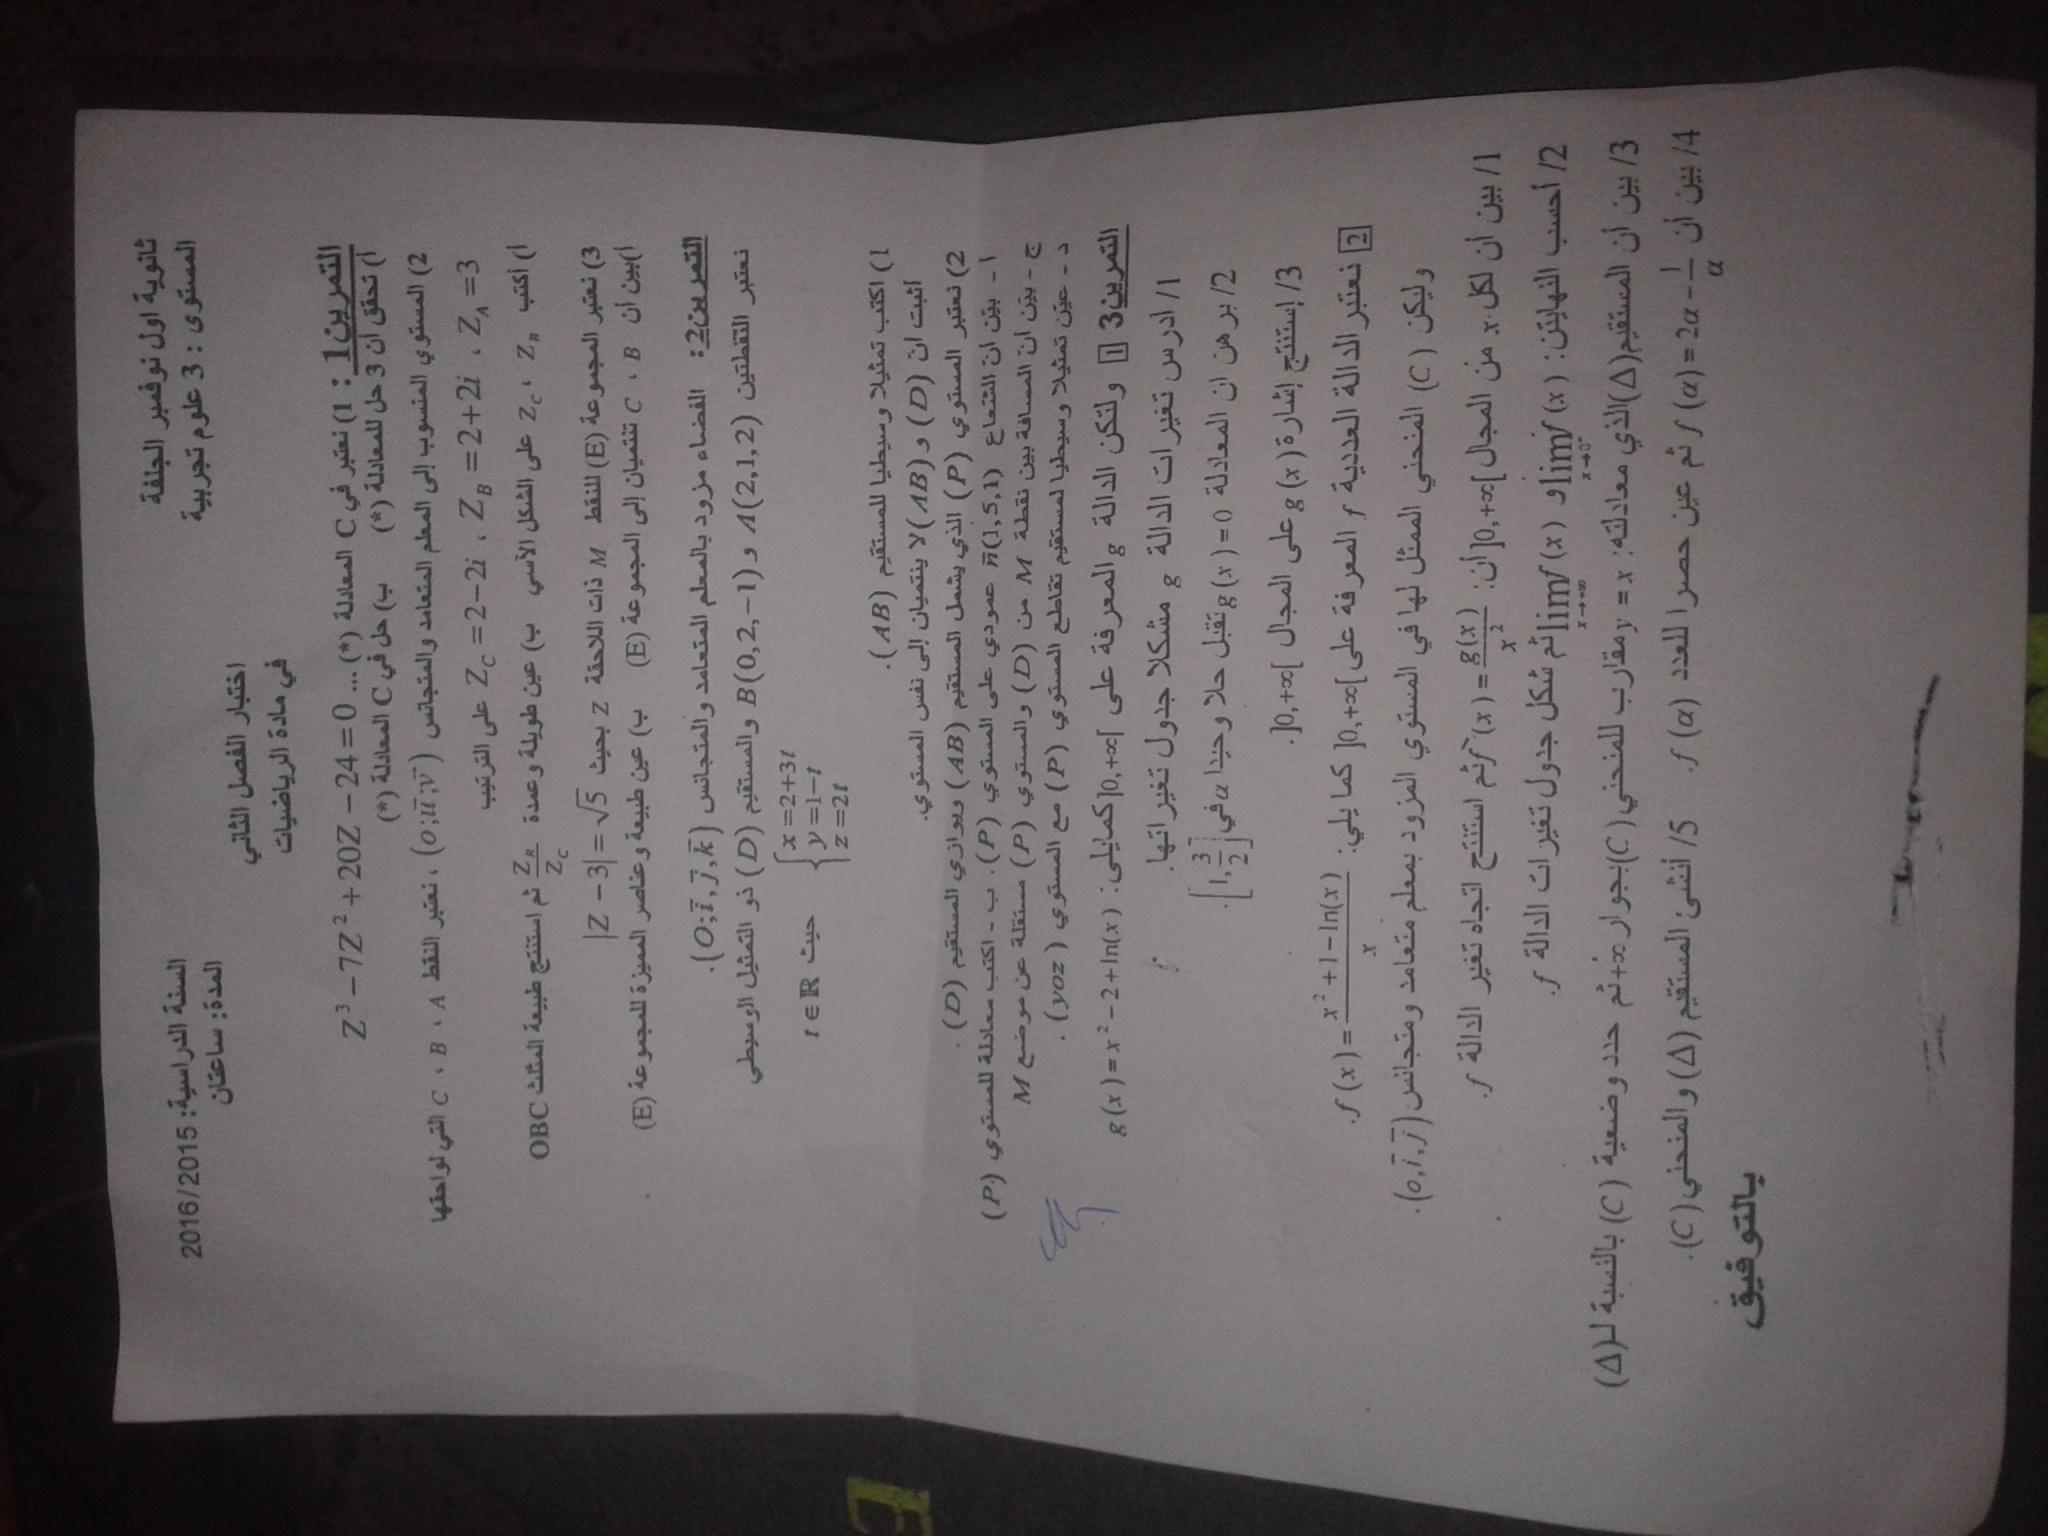 ثانوية اول نوفمبر الجلفة
السنة الدراسية: 2016/2015
المستوى : 3 علوم تجريبية
المدة: ساعتان
اختبار الفصل الثاني
في مادة الرياضيات
التمرين1 : 1) نعتبر في C المعادلة (*) ... Z³ − 7Z² + 20Z − 24 = 0
أ) تحقق ان 3 حل للمعادلة (*) ب) حل في C المعادلة (*)
2) المستوي المنسوب إلى المعلم المتعامد والمتجانس (o;u⃗;v⃗) ، نعتبر النقط A ، B ، C التي لواحقها
Z_A = 3 ، Z_B = 2+2i ، Z_C = 2−2i على الترتيب
أ) اكتب Z_B ، Z_C على الشكل الأسي ب) عين طويلة وعمدة Z_B/Z_C ثم استنتج طبيعة المثلث OBC
3) نعتبر المجموعة (E) للنقط M ذات اللاحقة Z بحيث |Z − 3| = √5
أ)بين أن B ، C تنتميان إلى المجموعة (E) ب) عين طبيعة وعناصر المميزة للمجموعة (E)
التمرين2: الفضاء مزود بالمعلم المتعامد والمتجانس (O;i⃗,j⃗,k⃗).
نعتبر النقطتين A(2,1,2) و B(0,2,−1) والمستقيم (D) ذو التمثيل الوسيطي
{ x = 2+3t
y = 1−t حيث t ∈ ℝ
z = 2t
1) اكتب تمثيلا وسيطيا للمستقيم (AB).
أثبت انّ (D) و (AB) لا ينتميان إلى نفس المستوي.
2) نعتبر المستوي (P) الذي يشمل المستقيم (AB) ويوازي المستقيم (D).
أ - بيّن ان الشعاع n⃗(1,5,1) عمودي على المستوي (P). ب - اكتب معادلة للمستوي (P)
ج - بيّن انّ المسافة بين نقطة M من (D) والمستوي (P) مستقلة عن موضع M
د - عيّن تمثيلا وسيطيا لمستقيم تقاطع المستوي (P) مع المستوي (yoz).
التمرين3 1 ولتكن الدالة g المعرفة على ]0,+∞[ كمايلي: g(x) = x² − 2 + ln(x)
1/ ادرس تغيرات الدالة g مشكلا جدول تغيراتها.
2/ برهن ان المعادلة g(x) = 0 تقبل حلا وحيدا α في [1, 3/2].
3/ إستنتج إشارة g(x) على المجال ]0,+∞[.
2 نعتبر الدالة العددية f المعرفة على ]0,+∞[ كما يلي: f(x) = (x² + 1 − ln(x))/x.
وليكن (C) المنحني الممثل لها في المستوي المزود بمعلم متعامد ومتجانس (o,i⃗,j⃗).
1/ بين أن لكل x من المجال ]0,+∞[ أن: f′(x) = g(x)/x² ثم استنتج اتجاه تغير الدالة f.
2/ أحسب النهايتن: lim f(x) x→0 و lim f(x) x→+∞ ثم شكل جدول تغيرات الدالة f.
3/ بين أن المستقيم (Δ) الذي معادلته: y = x مقارب للمنحني (C) بجوار +∞ ثم حدد وضعية (C) بالنسبة لـ (Δ)
4/ بين أن f(α) = 2α − 1/α ثم عين حصرا للعدد f(α). 5/ أنشئ المستقيم (Δ) والمنحني (C).
بالتوفيق